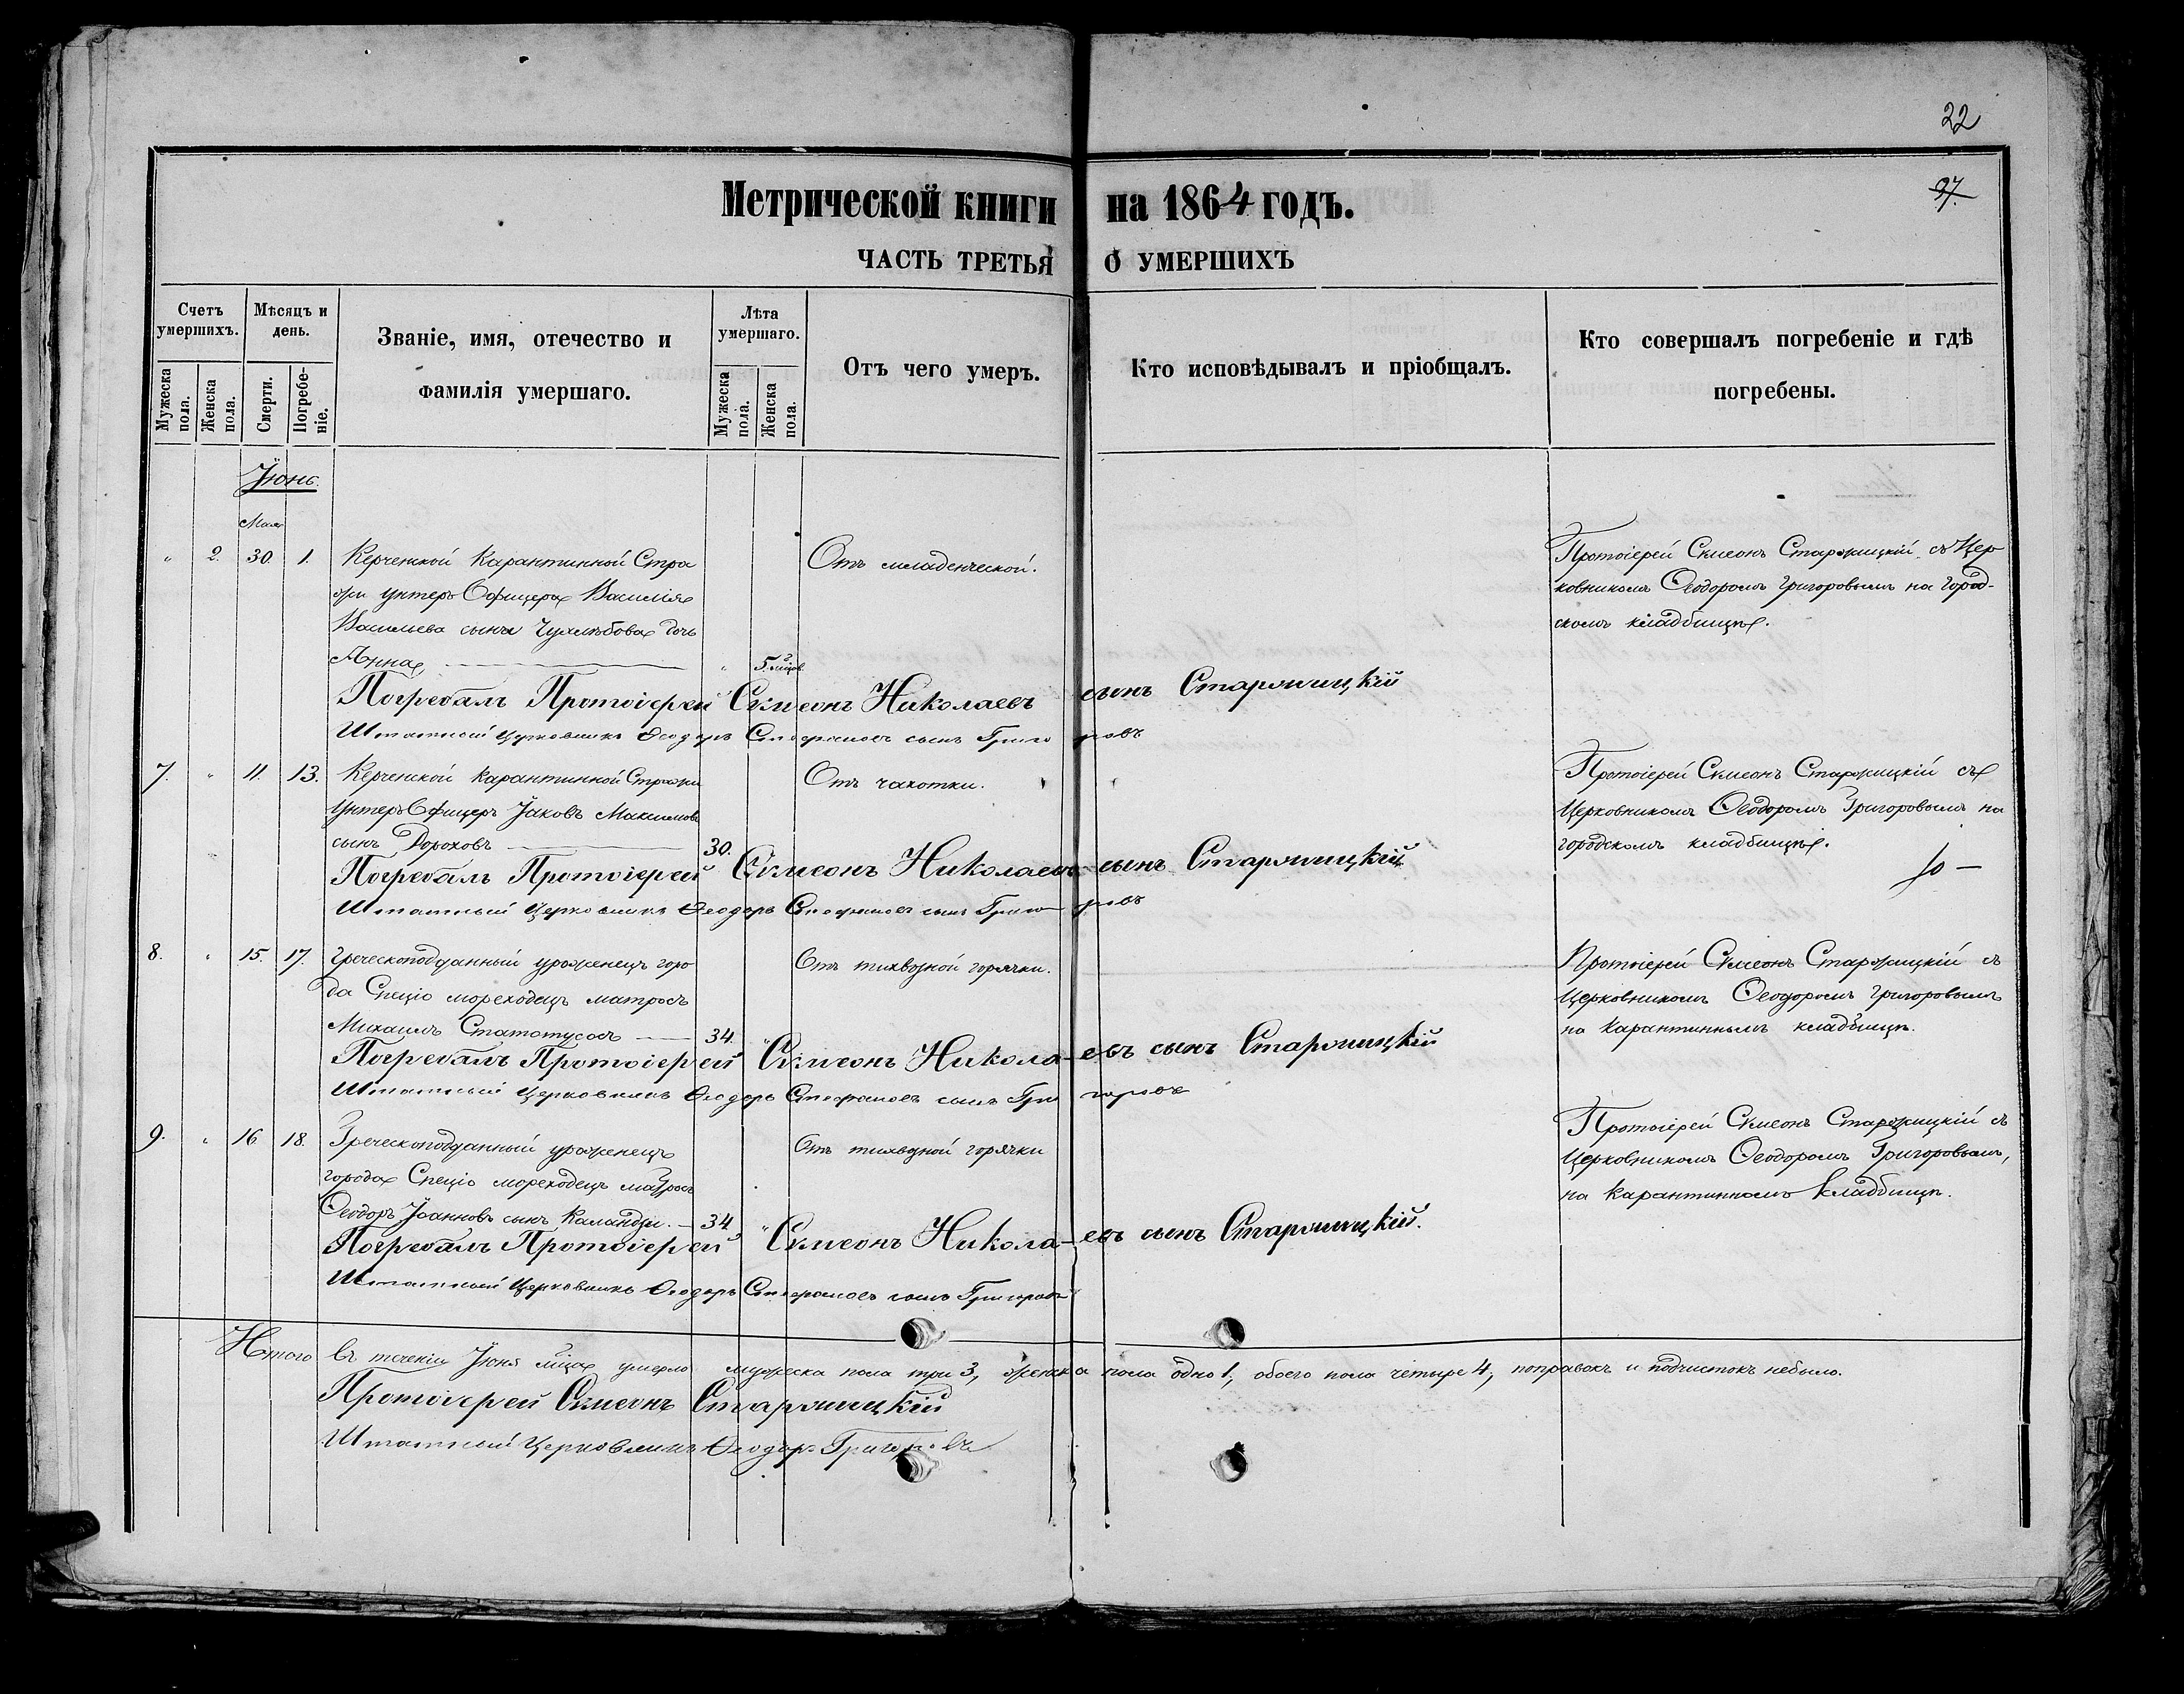 22
97.
Метрической книги на 1864 годъ.
ЧАСТЬ ТРЕТЬЯ О УМЕРШИХЪ
Счетъ умершихъ.
Мужеска пола.
Женска пола.
Мѣсяцъ и день.
Смерти.
Погребеніе.
Званіе, имя, отечество и фамилія умершаго.
Лѣта умершаго.
Мужеска пола.
Женска пола.
Отъ чего умеръ.
Кто исповѣдывалъ и пріобщалъ.
Кто совершалъ погребеніе и гдѣ погребены.
Іюнь.
Мая
" 2. 30. 1. Керченской Карантинной Стра
жи унтеръ Офицера Василія
Васильева сына дочь
Анна " 5 мцов.
Отъ младенческой.
Протоіерей Симеонъ Старожицкій съ Цер
ковникомъ Ѳеодоромъ Григоровымъ на город-
скомъ кладбищѣ.
Погребалъ Протоіерей Симеонъ Николаевъ сынъ Старожицкій
Штатный Церковникъ Ѳеодоръ Стефановъ сынъ Григоровъ
7. " 11. 13. Керченской Карантинной Стражи
унтеръ Офицеръ Іаковъ Максимовъ
сынъ Дороховъ 30.
Отъ чахотки.
Протоіерей Симеонъ Старожицкій съ
Церковникомъ Ѳеодоромъ Григоровымъ на
городскомъ кладбищѣ.
Погребалъ Протоіерей Симеонъ Николаевъ сынъ Старожицкій
Штатный Церковникъ Ѳеодоръ Стефановъ сынъ Григоровъ
8. " 15. 17. Греческоподданный уроженецъ горо
да Спеціо мореходецъ матросъ
Михаилъ 34. "
Отъ тиховодной горячки.
Протоіерей Симеонъ Старожицкій съ
Церковникомъ Ѳеодоромъ Григоровымъ
на Карантинномъ кладбищѣ.
Погребалъ Протоіерей Симеонъ Николаевъ сынъ Старожицкій
Штатный Церковникъ Ѳеодоръ Стефановъ сынъ Григоровъ
9. " 16. 18. Греческоподданный уроженецъ
города Спеціо мореходецъ матросъ
Ѳеодоръ Іоанновъ сынъ 34 "
Отъ тиховодной горячки
Протоіерей Симеонъ Старожицкій съ
Церковникомъ Ѳеодоромъ Григоровымъ,
на Карантинномъ кладбищѣ.
Погребалъ Протоіерей Симеонъ Николаевъ сынъ Старожицкій.
Штатный Церковникъ Ѳеодоръ Стефановъ сынъ Григоровъ
Итого въ теченіи Іюня мѣсца умерло мужеска пола три 3, женска пола одно 1, обоего пола четыре 4, поправокъ и подчистокъ небыло.
Протоіерей Симеонъ Старожицкій
Штатный Церковникъ Ѳеодоръ Григоровъ